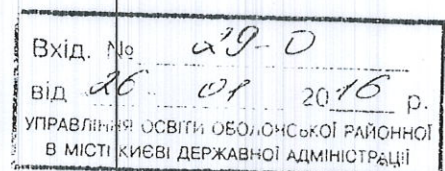 Вхід. № 29-О
від 26 01 2016 р.
УПРАВЛІННЯ ОСВІТИ ОБОЛОНСЬКОЇ РАЙОННОЇ
В МІСТІ КИЄВІ ДЕРЖАВНОЇ АДМІНІСТРАЦІЇ